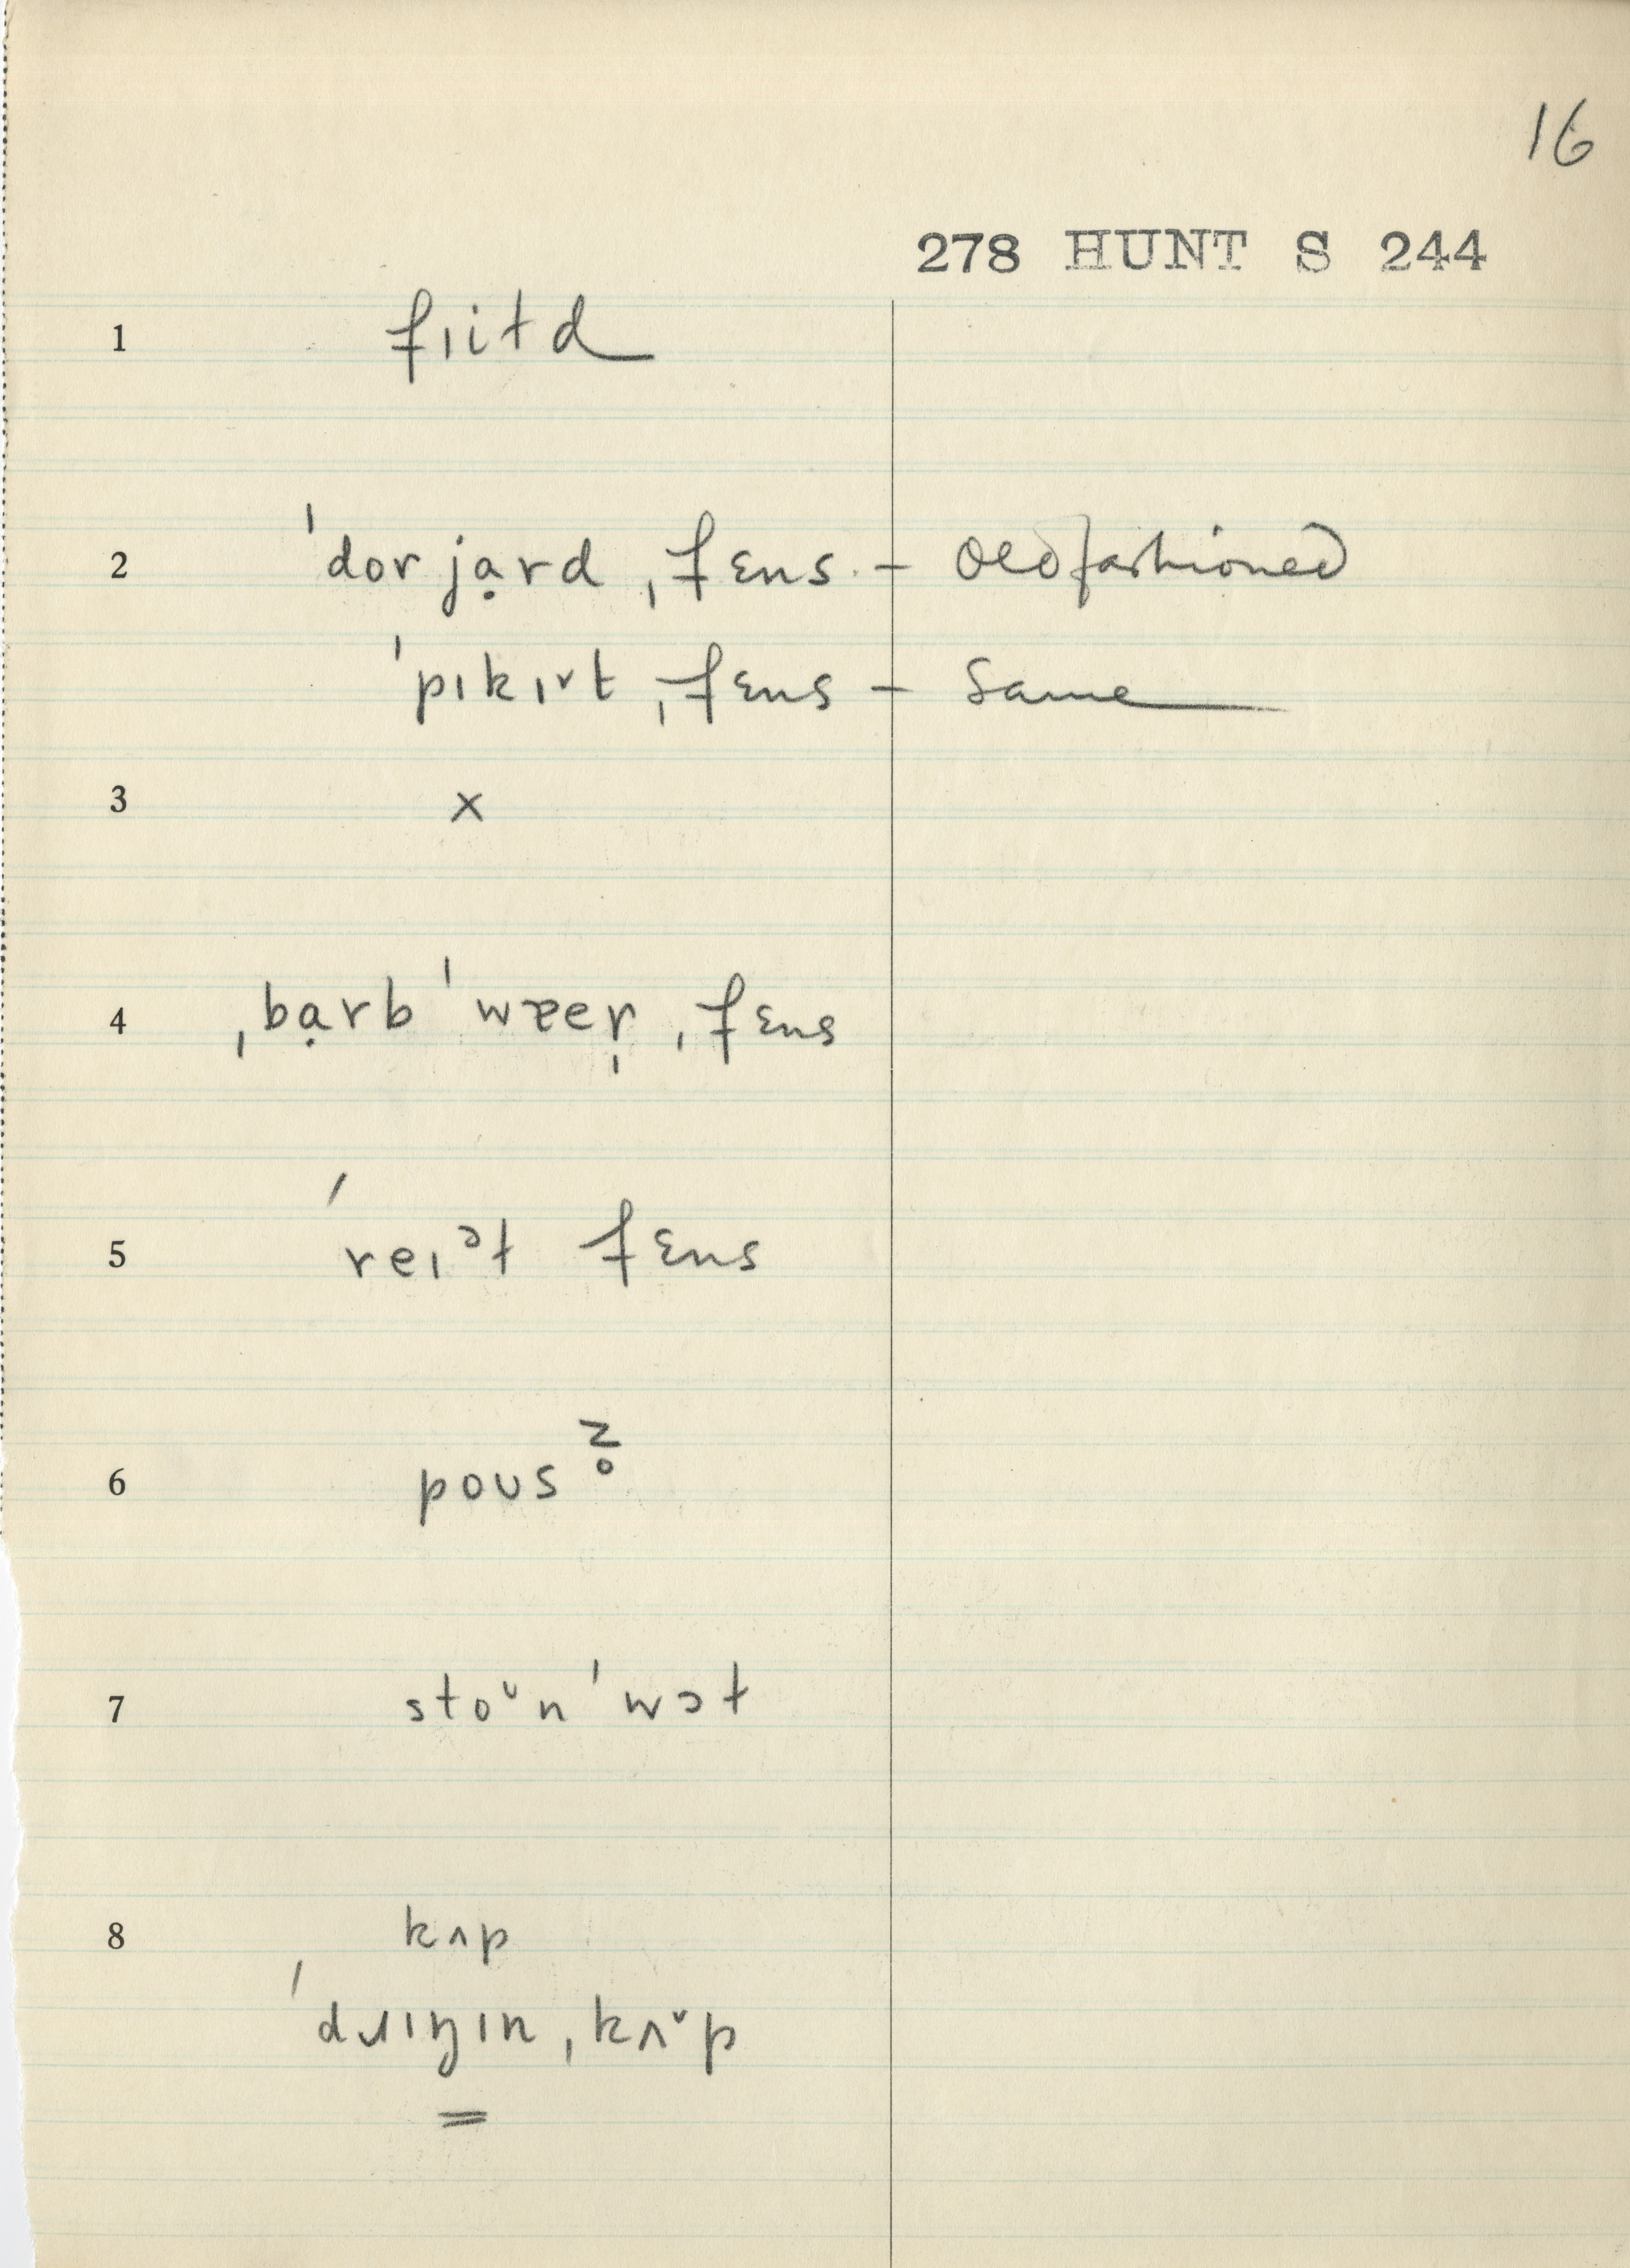 16
278 HUNT S 244
1 fɪitɫd
2 ˈdor jɑ̣rd ˌfɛns – Old fashioned
ˈpɪkɪᵛt ˌfɛns – Same
3 x
4 ˌbɑ̣rb ˈwɐer̩ ˌfɛns
5 ˈreɪᵊɫ fɛns
6 poʊs z̥
7 stoᶷn ˈwɔɫ
8 kʌp
ˈdɹɪŋɪn ˌkʌ˅p
=